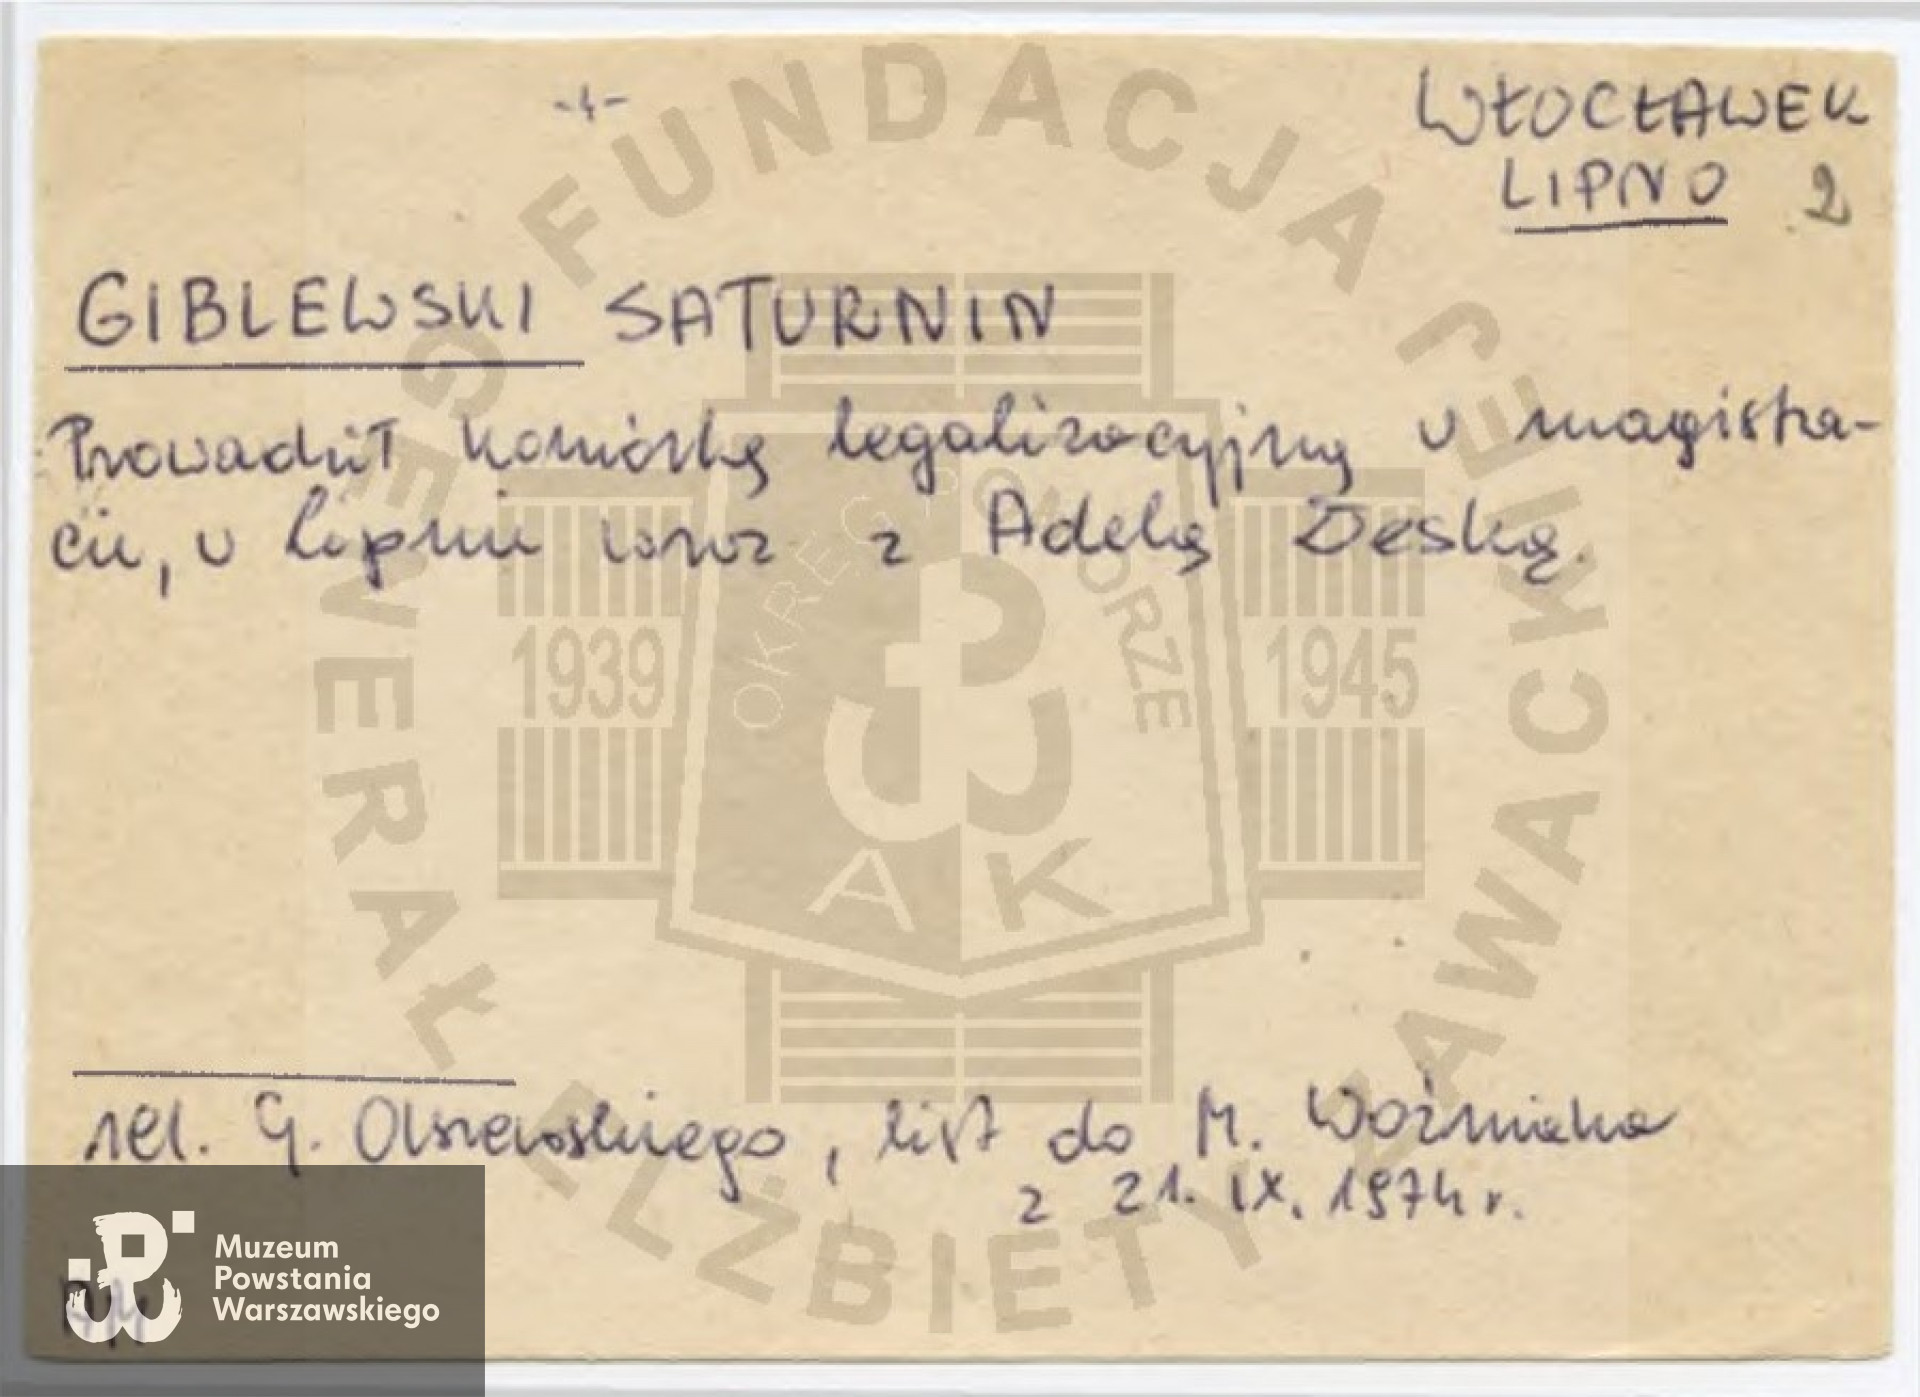 -1-
WŁOCŁAWEK
LIPNO 2
GIBLEWSKI SATURNIN
Prowadził komórkę legalizacyjną w magistra-
cie, w Lipnie wraz z Adelą Deską.
rel. G. Olszewskiego, list do M. Woźniaka
z 21. IX. 1974 r.
FUNDACJA GENERAŁ ELŻBIETY ZAWACKIEJ
OKRĘG POMORZE
1939
1945
A K
Muzeum
Powstania
Warszawskiego